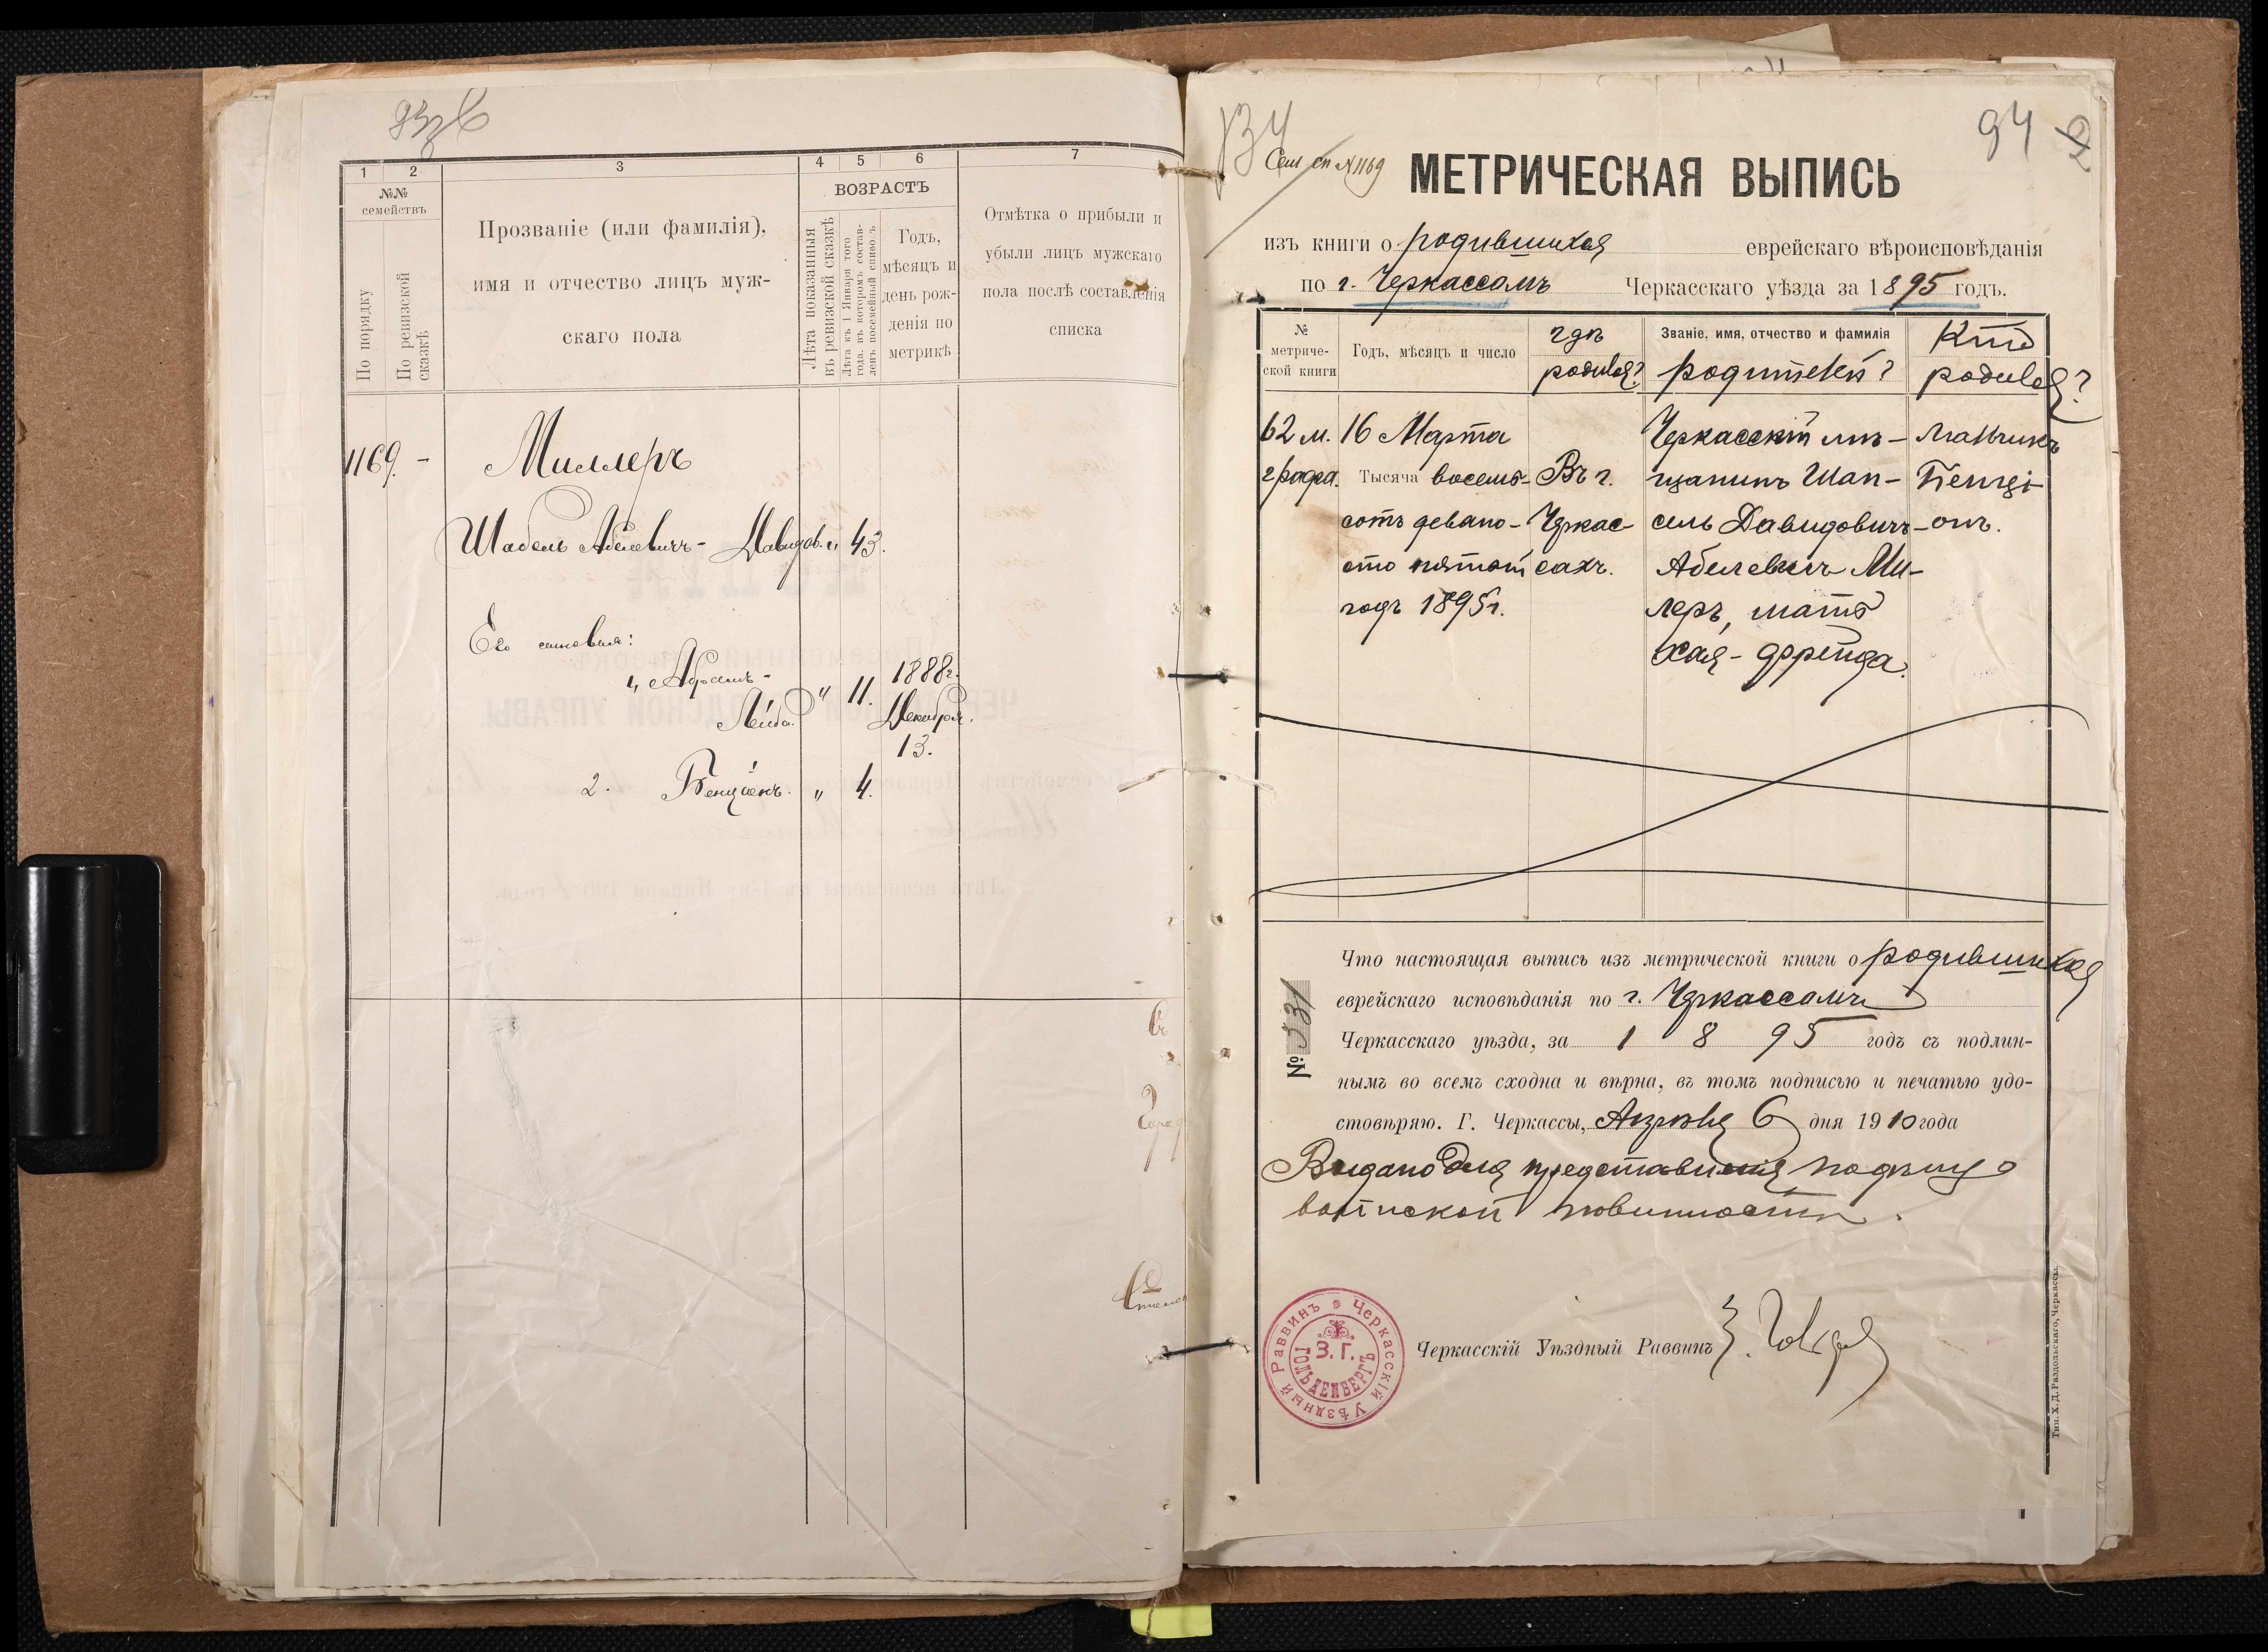 1
2
3
4
5
6
7
№№
семействъ
ВОЗРАСТЪ
По порядку
По ревизской
сказкѣ
Прозваніе (или фамилія),
имя и отчество лицъ муж-
скаго пола
Лѣта показанныя
въ ревизской сказкѣ
Лѣта къ 1 Января того
года, въ которомъ состав-
ленъ посемейный списокъ
Годъ,
мѣсяцъ и
день рож-
денія по
метрикѣ
Отмѣтка о прибыли и
убыли лицъ мужскаго
пола послѣ составленія
списка
1169. - Миллеръ
Шабсель Абелевичъ - Давидов. " 43.
Его сыновья:
1, Абрамъ -
Лейба. " 11. 1888г.
Декабря.
13.
2. Бенціонъ. " 4.
134
94
Сем сп №1169
МЕТРИЧЕСКАЯ ВЫПИСЬ
изъ книги о родившихся еврейскаго вѣроисповѣданія
по г. Черкассамъ Черкасскаго уѣзда за 1895 годъ.
№
метриче-
ской книги
Годъ, мѣсяцъ и число
гдѣ
родился?
Званіе, имя, отчество и фамилія
родителей?
Кто
родился?
62 м. 16 Марта Черкасскій мѣ- мальчикъ
графа. Тысяча восемь- Въ г. щанинъ Шап- Бенці-
сотъ девяно- Черкас- сель Давидовичъ- онъ.
сто пятый сахъ. Абелевичъ Ми-
годъ 1895г. леръ, мать
Хая - Фрейда.
Что настоящая выпись изъ метрической книги о родившихся
еврейскаго исповѣданія по г. Черкассамъ
Черкасскаго уѣзда, за 1895 годъ съ подлин-
нымъ во всемъ сходна и вѣрна, въ томъ подписью и печатью удо-
стовѣряю. Г. Черкассы, Апрѣля 6 дня 1910 года
Выдано для представленія по дѣлу о
воинской повинности.
№ 531
Черкасскій Уѣздный Раввинъ
Черкасскій Уѣздный Раввинъ
З. Г.
ГОЛЬДЕНБЕРГЪ
Тип. Х. Д. Раздольскаго, Черкассы.